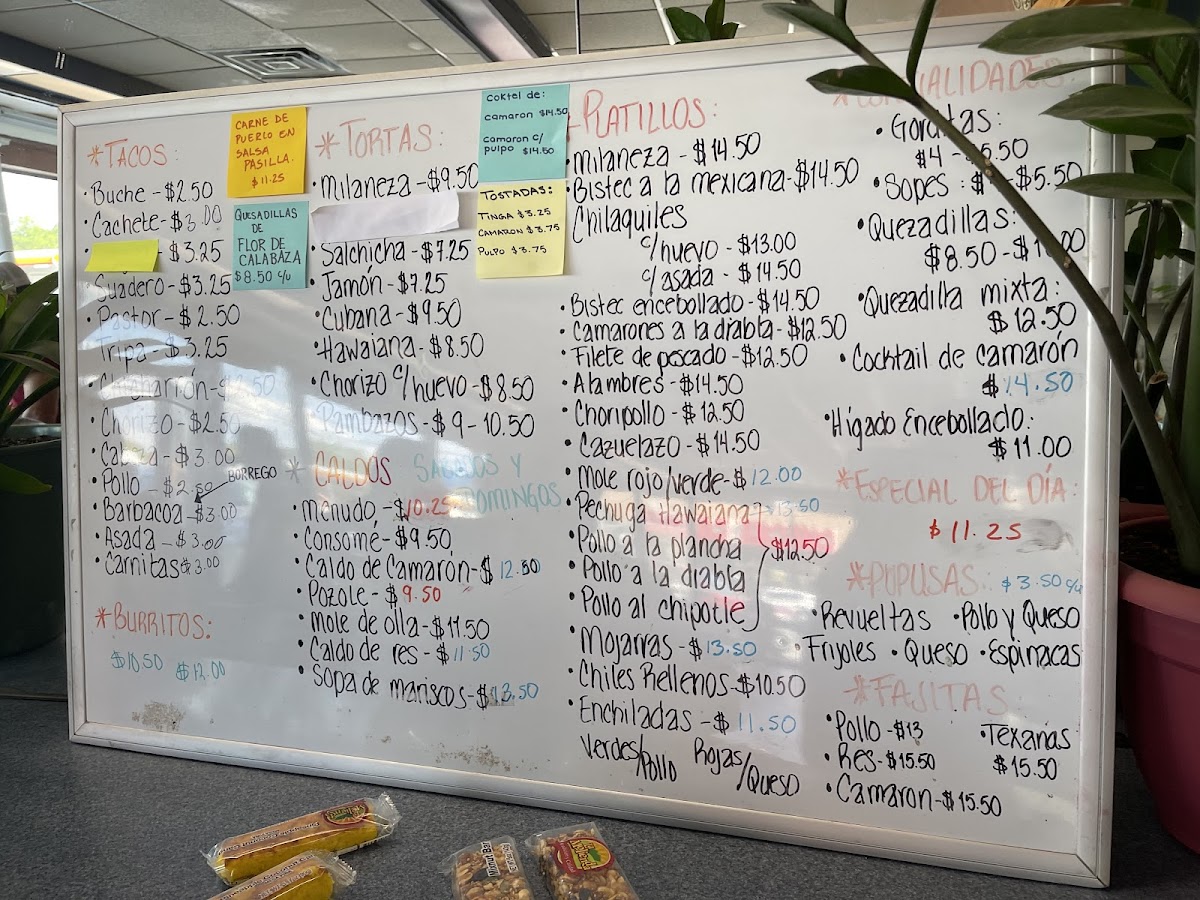 *TACOS:
•Buche - $2.50
•Cachete - $3.00
- $3.25
•Suadero - $3.25
•Pastor - $2.50
•Tripa - $3.25
•Chicharrón - $2.50
•Chorizo - $2.50
•Cabeza - $3.00
•Pollo - $2.50
BORREGO
•Barbacoa - $3.00
•Asada - $3.00
•Carnitas $3.00
*BURRITOS:
$10.50 $12.00
CARNE DE
PUERCO EN
SALSA
PASILLA.
$11.25
QUESADILLAS
DE
FLOR DE
CALABAZA
$8.50 c/u
*TORTAS:
•Milaneza - $9.50
•Salchicha - $7.25
•Jamón - $7.25
•Cubana - $9.50
•Hawaiana - $8.50
•Chorizo c/huevo - $8.50
Pambazos - $9 - 10.50
* CALDOS SABADOS Y
DOMINGOS
•Menudo - $10.25
•Consomé - $9.50
•Caldo de Camarón - $12.50
•Pozole - $9.50
•Mole de olla - $11.50
•Caldo de res - $11.50
•Sopa de mariscos - $13.50
COKTEL DE:
camaron $14.50
camaron c/
pulpo $14.50
TOSTADAS:
TINGA $3.25
CAMARON $3.75
PULPO $3.75
PLATILLOS:
•Milaneza - $14.50
•Bistec a la mexicana - $14.50
•Chilaquiles
c/huevo - $13.00
c/asada - $14.50
•Bistec encebollado - $14.50
•Camarones a la diabla - $12.50
•Filete de pescado - $12.50
•Alambres - $14.50
•Choripollo - $12.50
•Cazuelazo - $14.50
•Mole rojo/verde - $12.00
•Pechuga Hawaiana - 13.50
•Pollo a la plancha $12.50
•Pollo a la diabla
•Pollo al chipotle
•Mojarras - $13.50
•Chiles Rellenos - $10.50
•Enchiladas - $11.50
Verdes/Pollo Rojas/Queso
•Gorditas:
$4 - 5.50
•Sopes: $ - $5.50
•Quezadillas:
$8.50 - $
•Quezadilla mixta:
$12.50
•Cocktail de camarón
$14.50
•Hígado Encebollado:
$11.00
*ESPECIAL DEL DÍA:
$11.25
*PUPUSAS $3.50 c/u
•Revueltas •Pollo y Queso
•Frijoles •Queso •Espinacas
*FAJITAS
•Pollo - $13 •Texanas
•Res - $15.50 $15.50
•Camaron - $15.50
Nut Bar